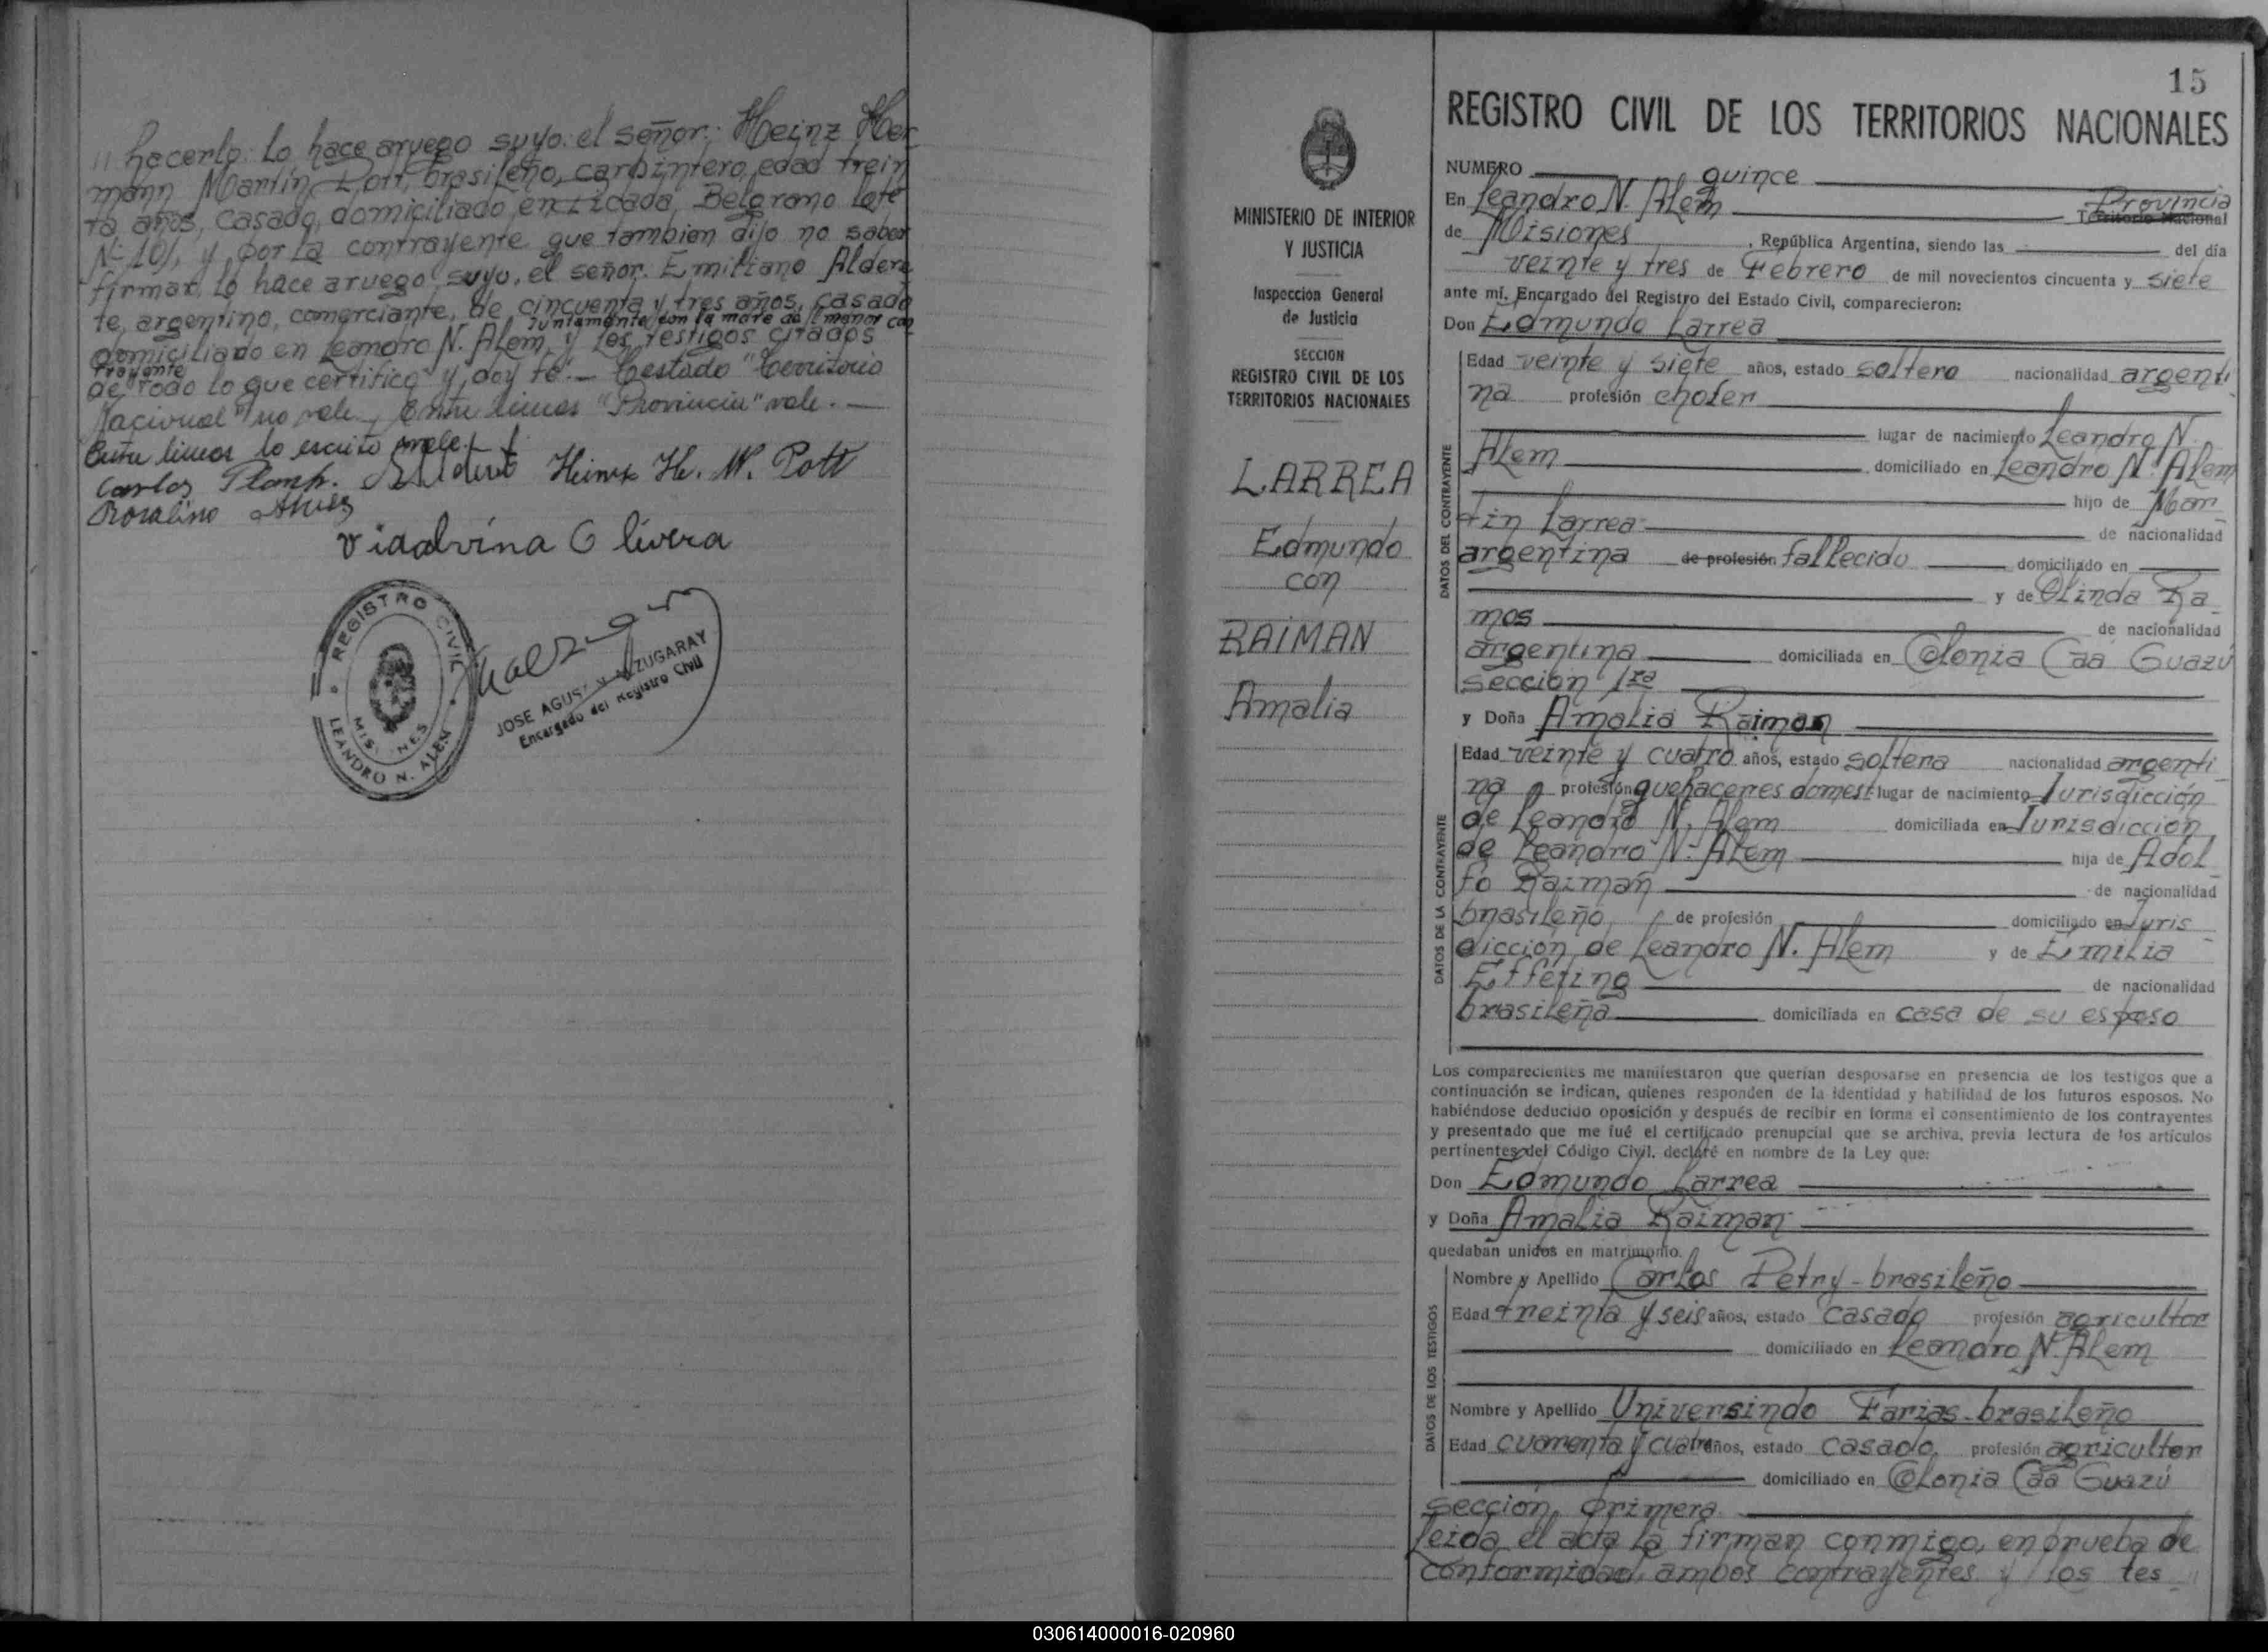 " hacerlo lo hace aruego suyo: el señor: Heinz Her
mann Martín Pott, brasileño, carpintero, edad trein
ta años, casado, domiciliado en Picada Belgrano lote
Nº 101, y por la contrayente que tambien dijo no saber
firmar, lo hace aruego suyo, el señor. Emiliano Aldere
te, argentino, comerciante, de cincuenta y tres años, casado
Juntamente con la madre del menor con
domiciliado en Leandro N. Alem, y los testigos citados
trayente
de todo lo que certifico y doy fé.— Testado "Territorio
Nacional" no vale. Entre lineas "Provincia" vale.—
Entre lineas lo escrito vale.
Carlos Heinz He. M. Pott
Rosalino Alves
Vidalvina Olivera
REGISTRO CIVIL
MISIONES
LEANDRO N. ALEM
JOSE AGUSTIN ZUGARAY
Encargado del Registro Civil
15
REGISTRO CIVIL DE LOS TERRITORIOS NACIONALES
MINISTERIO DE INTERIOR
Y JUSTICIA
Inspección General
de Justicia
SECCION
REGISTRO CIVIL DE LOS
TERRITORIOS NACIONALES
LARREA
Edmundo
con
RAIMAN
Amalia
NUMERO quince
En Leandro N. Alem Provincia
Territorio Nacional
de Misiones, República Argentina, siendo las del día
veinte y tres de Febrero de mil novecientos cincuenta y siete
ante mí, Encargado del Registro del Estado Civil, comparecieron:
Don Edmundo Larrea
DATOS DEL CONTRAYENTE
Edad veinte y siete años, estado soltero nacionalidad argenti
na profesión chofer
lugar de nacimiento Leandro N.
Alem domiciliado en Leandro N. Alem
hijo de Mar
tin Larrea de nacionalidad
argentina de profesión fallecido domiciliado en
y de Olinda Ra
mos de nacionalidad
argentina domiciliada en Colonia Caá Guazú
sección 1ra
y Doña Amalia Raiman
DATOS DE LA CONTRAYENTE
Edad veinte y cuatro años, estado soltera nacionalidad argenti
na profesión quehaceres domest. lugar de nacimiento Jurisdicción
de Leandro N. Alem domiciliada en Jurisdicción
de Leandro N. Alem hija de Adol
fo Raiman de nacionalidad
brasileño, de profesión domiciliado en Juris
dicción de Leandro N. Alem y de Emilia
de nacionalidad
brasileña domiciliada en casa de su esposo
Los comparecientes me manifestaron que querían desposarse en presencia de los testigos que a
continuación se indican, quienes responden de la identidad y habilidad de los futuros esposos. No
habiéndose deducido oposición y después de recibir en forma el consentimiento de los contrayentes
y presentado que me fué el certificado prenupcial que se archiva, previa lectura de los artículos
pertinentes del Código Civil, declaré en nombre de la Ley que:
Don Edmundo Larrea
y Doña Amalia Raiman
quedaban unidos en matrimonio.
DATOS DE LOS TESTIGOS
Nombre y Apellido Carlos Petry - brasileño
Edad treinta y seis años, estado casado profesión agricultor
domiciliado en Leandro N. Alem
Nombre y Apellido Universindo Farias - brasileño
Edad cuarenta y cuatro años, estado casado, profesión agricultor
domiciliado en Colonia Caá Guazú
sección primera
Leída el acta la firman conmigo, en prueba de
conformidad, ambos contrayentes y los tes "
030614000016-020960